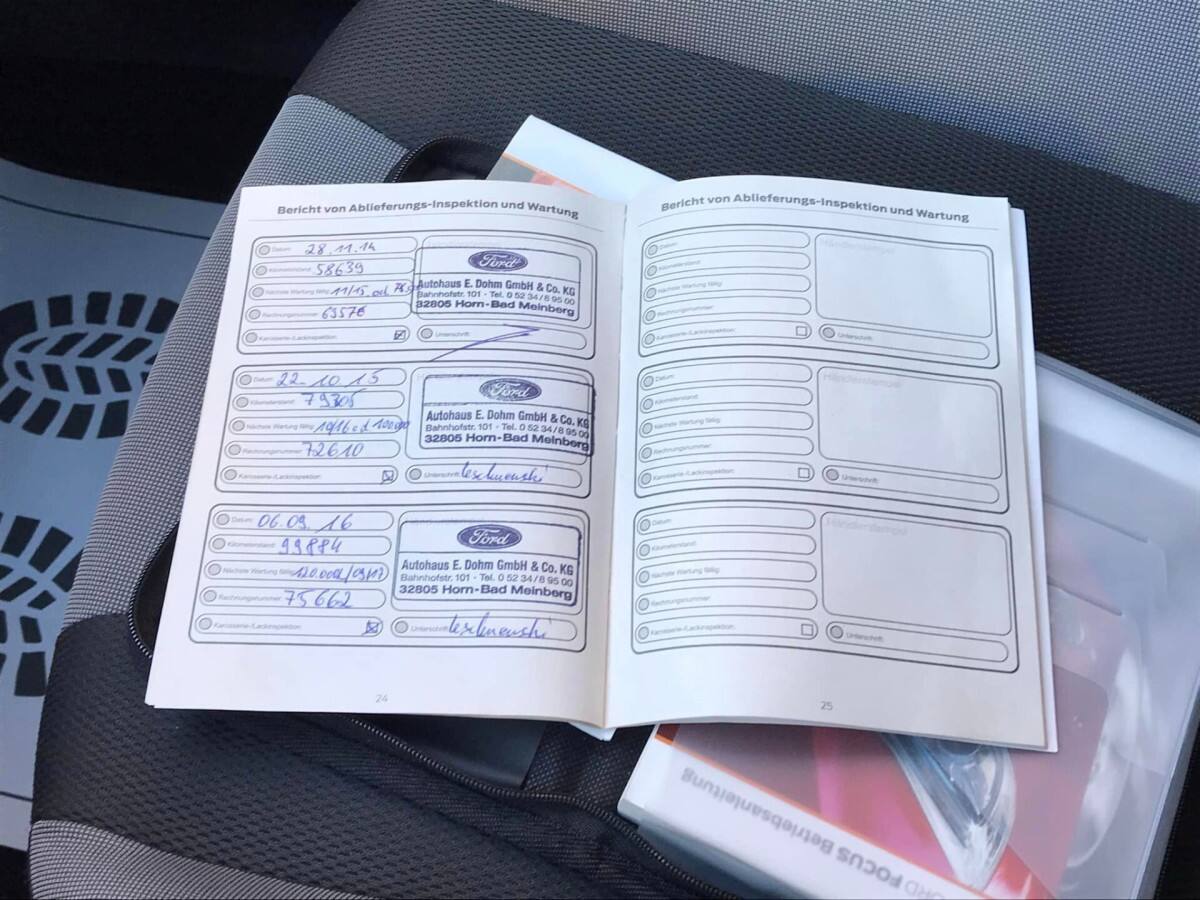 Bericht von Ablieferungs-Inspektion und Wartung
Datum: 28.11.14
Kilometerstand: 58639
Nächste Wartung fällig: 11/15 od 78.500
Rechnungsnummer: 63576
Karosserie-/Lackinspektion:
Unterschrift:
Ford
Autohaus E. Dohm GmbH & Co. KG
Bahnhofstr. 101 · Tel. 0 52 34/8 95 00
32805 Horn-Bad Meinberg
Datum: 22.10.15
Kilometerstand: 79305
Nächste Wartung fällig: 10/16 od 100000
Rechnungsnummer: 72610
Karosserie-/Lackinspektion:
Unterschrift:
Ford
Autohaus E. Dohm GmbH & Co. KG
Bahnhofstr. 101 · Tel. 0 52 34/8 95 00
32805 Horn-Bad Meinberg
Datum: 06.09.16
Kilometerstand: 99884
Nächste Wartung fällig: 120.000/09/17
Rechnungsnummer: 75662
Karosserie-/Lackinspektion:
Unterschrift:
Ford
Autohaus E. Dohm GmbH & Co. KG
Bahnhofstr. 101 · Tel. 0 52 34/8 95 00
32805 Horn-Bad Meinberg
24
Bericht von Ablieferungs-Inspektion und Wartung
Datum:
Kilometerstand:
Nächste Wartung fällig:
Rechnungsnummer:
Karosserie-/Lackinspektion:
Händlerstempel
Unterschrift:
Datum:
Kilometerstand:
Nächste Wartung fällig:
Rechnungsnummer:
Karosserie-/Lackinspektion:
Händlerstempel
Unterschrift:
Datum:
Kilometerstand:
Nächste Wartung fällig:
Rechnungsnummer:
Karosserie-/Lackinspektion:
Händlerstempel
Unterschrift:
25
FORD FOCUS Betriebsanleitung